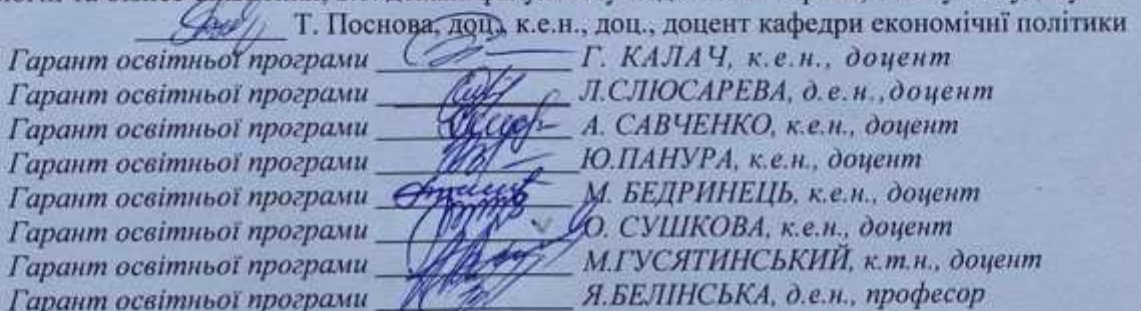 Т. Поснова, доц., к.е.н., доц., доцент кафедри економічні політики
Гарант освітньої програми Г. КАЛАЧ, к.е.н., доцент
Гарант освітньої програми Л.СЛЮСАРЕВА, д.е.н., доцент
Гарант освітньої програми А. САВЧЕНКО, к.е.н., доцент
Гарант освітньої програми Ю.ПАНУРА, к.е.н., доцент
Гарант освітньої програми М. БЕДРИНЕЦЬ, к.е.н., доцент
Гарант освітньої програми О. СУШКОВА, к.е.н., доцент
Гарант освітньої програми М.ГУСЯТИНСЬКИЙ, к.т.н., доцент
Гарант освітньої програми Я.БЕЛІНСЬКА, д.е.н., професор